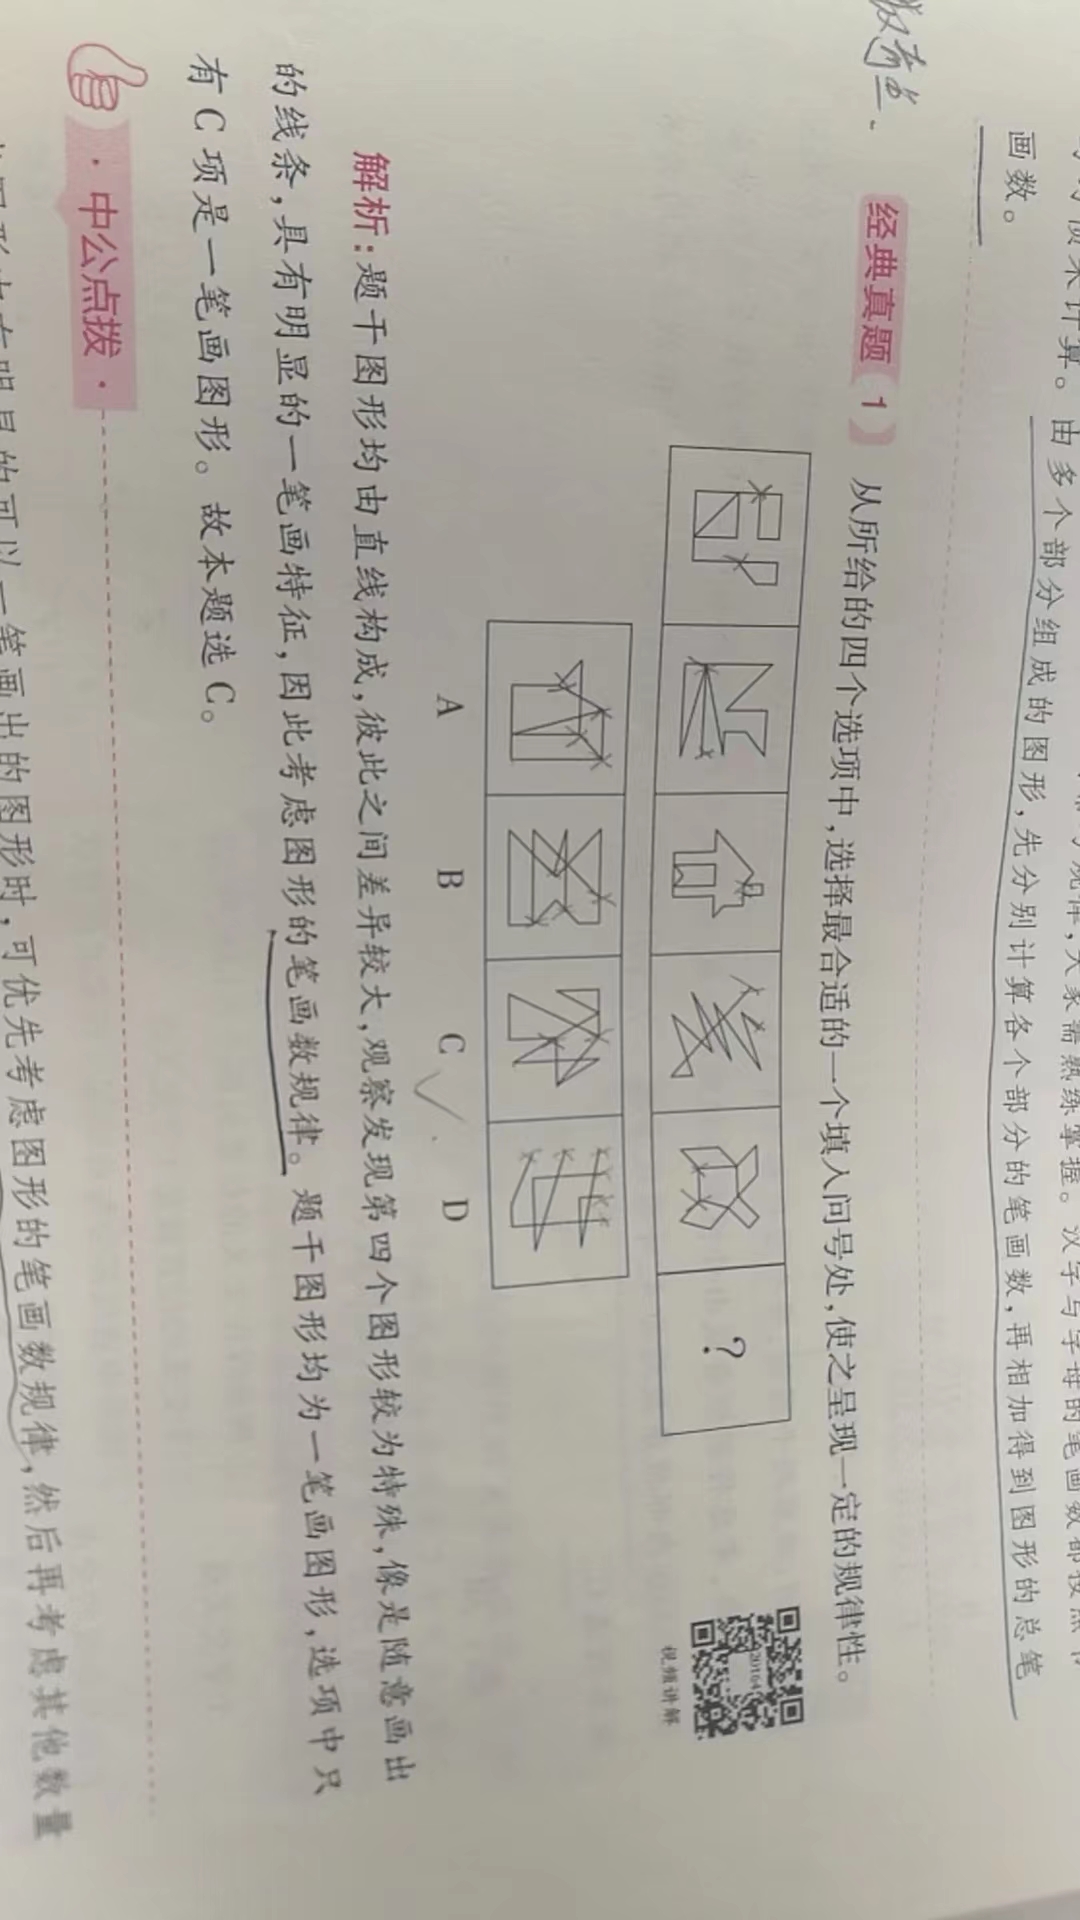 惯来计算。由多个部分组成的图形，先分别计算各个部分的笔画数，再相加得到图形的总笔
画数。
经典真题 1 从所给的四个选项中，选择最合适的一个填入问号处，使之呈现一定的规律性。
2016
视频讲解
?
A B C D
解析：题干图形均由直线构成，彼此之间差异较大，观察发现第四个图形较为特殊，像是随意画出
的线条，具有明显的一笔画特征，因此考虑图形的笔画数规律。题干图形均为一笔画图形，选项中只
有 C 项是一笔画图形。故本题选 C。
·中公点拨·
图形中有明显的可以一笔画出的图形时，可优先考虑图形的笔画数规律，然后再考虑其他数量